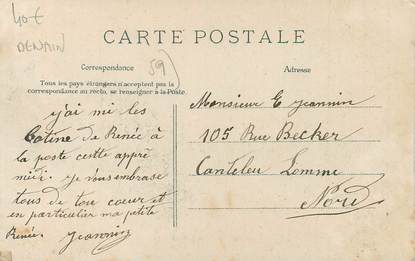 40€
DENAIN
59
CARTE POSTALE
Correspondance
Adresse
Tous les pays étrangers n'acceptent pas la
correspondance au recto, se renseigner à la Poste.
j'ai mi les
Cotine de Renée à
la poste cette apprè
midi. je vous embrase
tous de tou coeur et
en particulier ma petite
Renée. Jeannin
Monsieur E Jeannin
105 Rue Becker
Canteleu Lomme
Nord